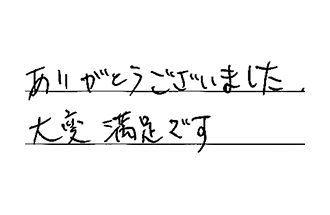 ありがとうございました.
大変満足です